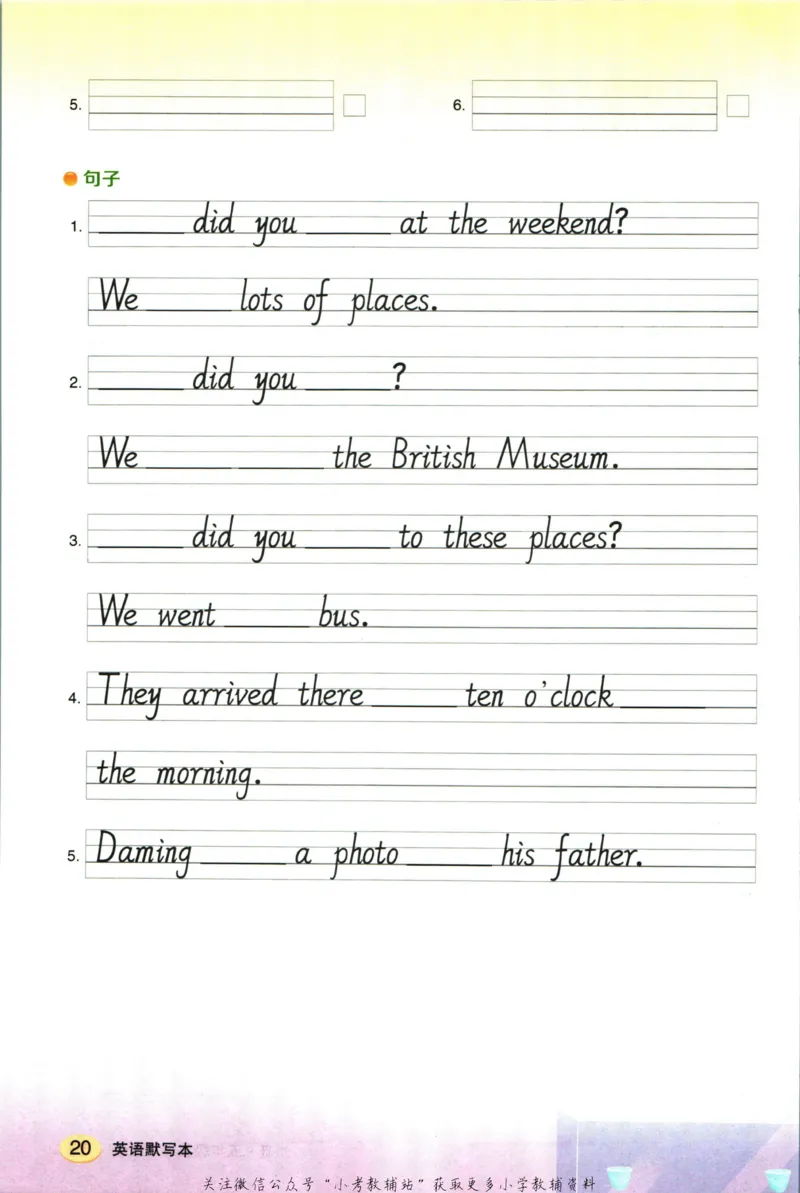 5.
6.
句子
1. ______ did you ______ at the weekend?
We ______ lots of places.
2. ______ did you ______?
We ______ ______ the British Museum.
3. ______ did you ______ to these places?
We went ______ bus.
4. They arrived there ______ ten o'clock ______
the morning.
5. Daming ______ a photo ______ his father.
20 英语默写本
关注微信公众号“小考教辅站”获取更多小学教辅资料